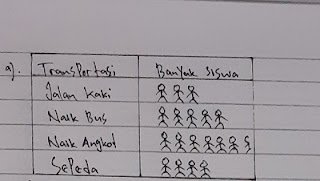 a). Transportasi Banyak siswa
Jalan Kaki
Naik Bus
Naik Angkot
Sepeda